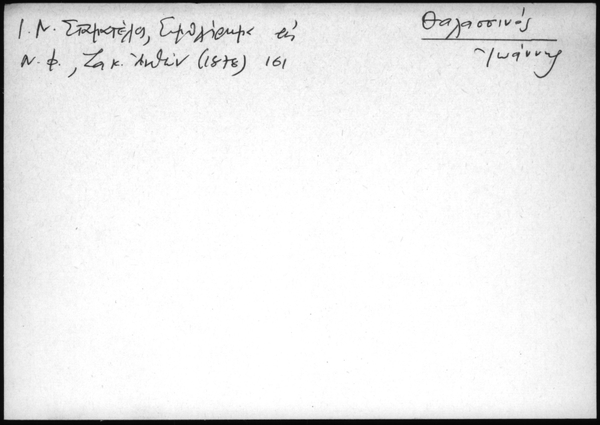 Θαλασσινός
Ἰωάννης
Ι. Ν. Σταματέλου, Συμπλήρωμα εἰς
Ν. Φ., Ζακ. Ἀνθών (1878) 161